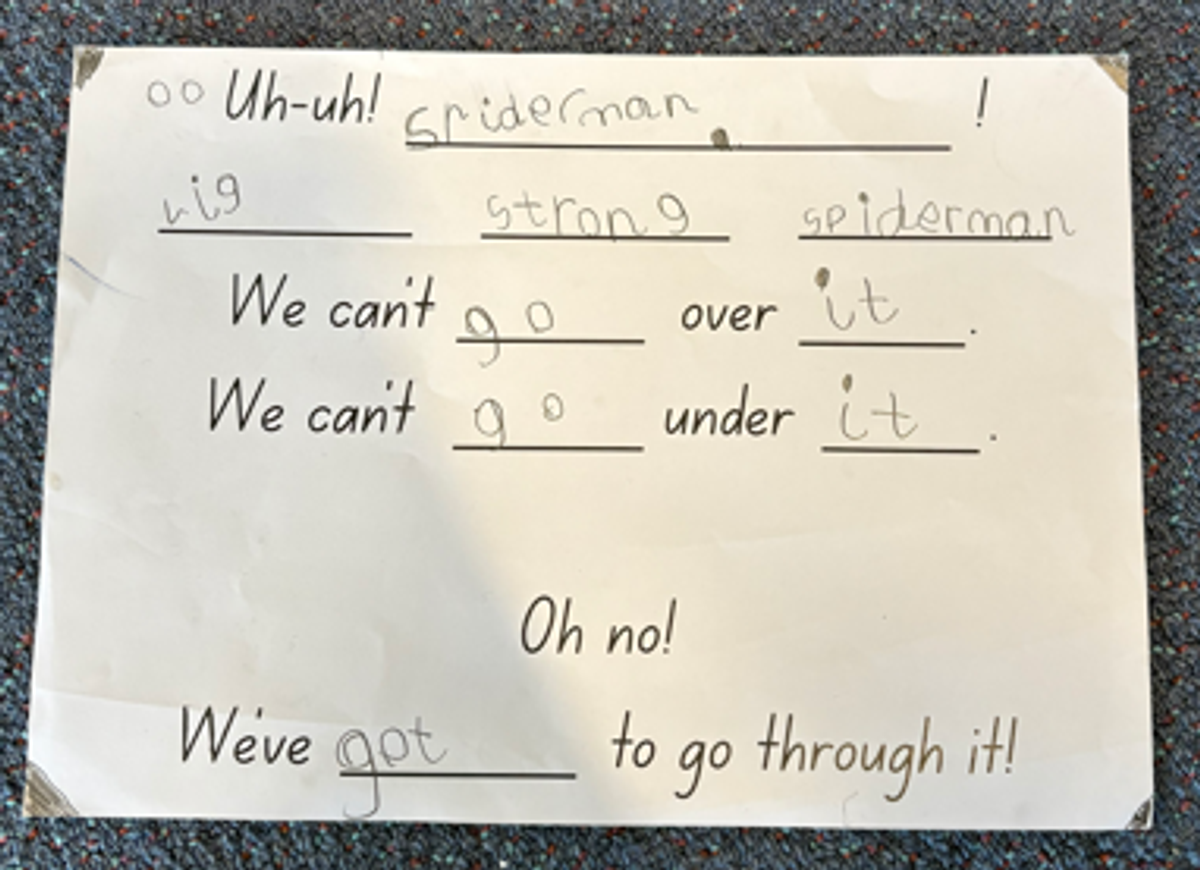 oo Uh-uh! spiderman !
big strong spiderman
We can't go over it.
We can't go under it.
Oh no!
We've got to go through it!